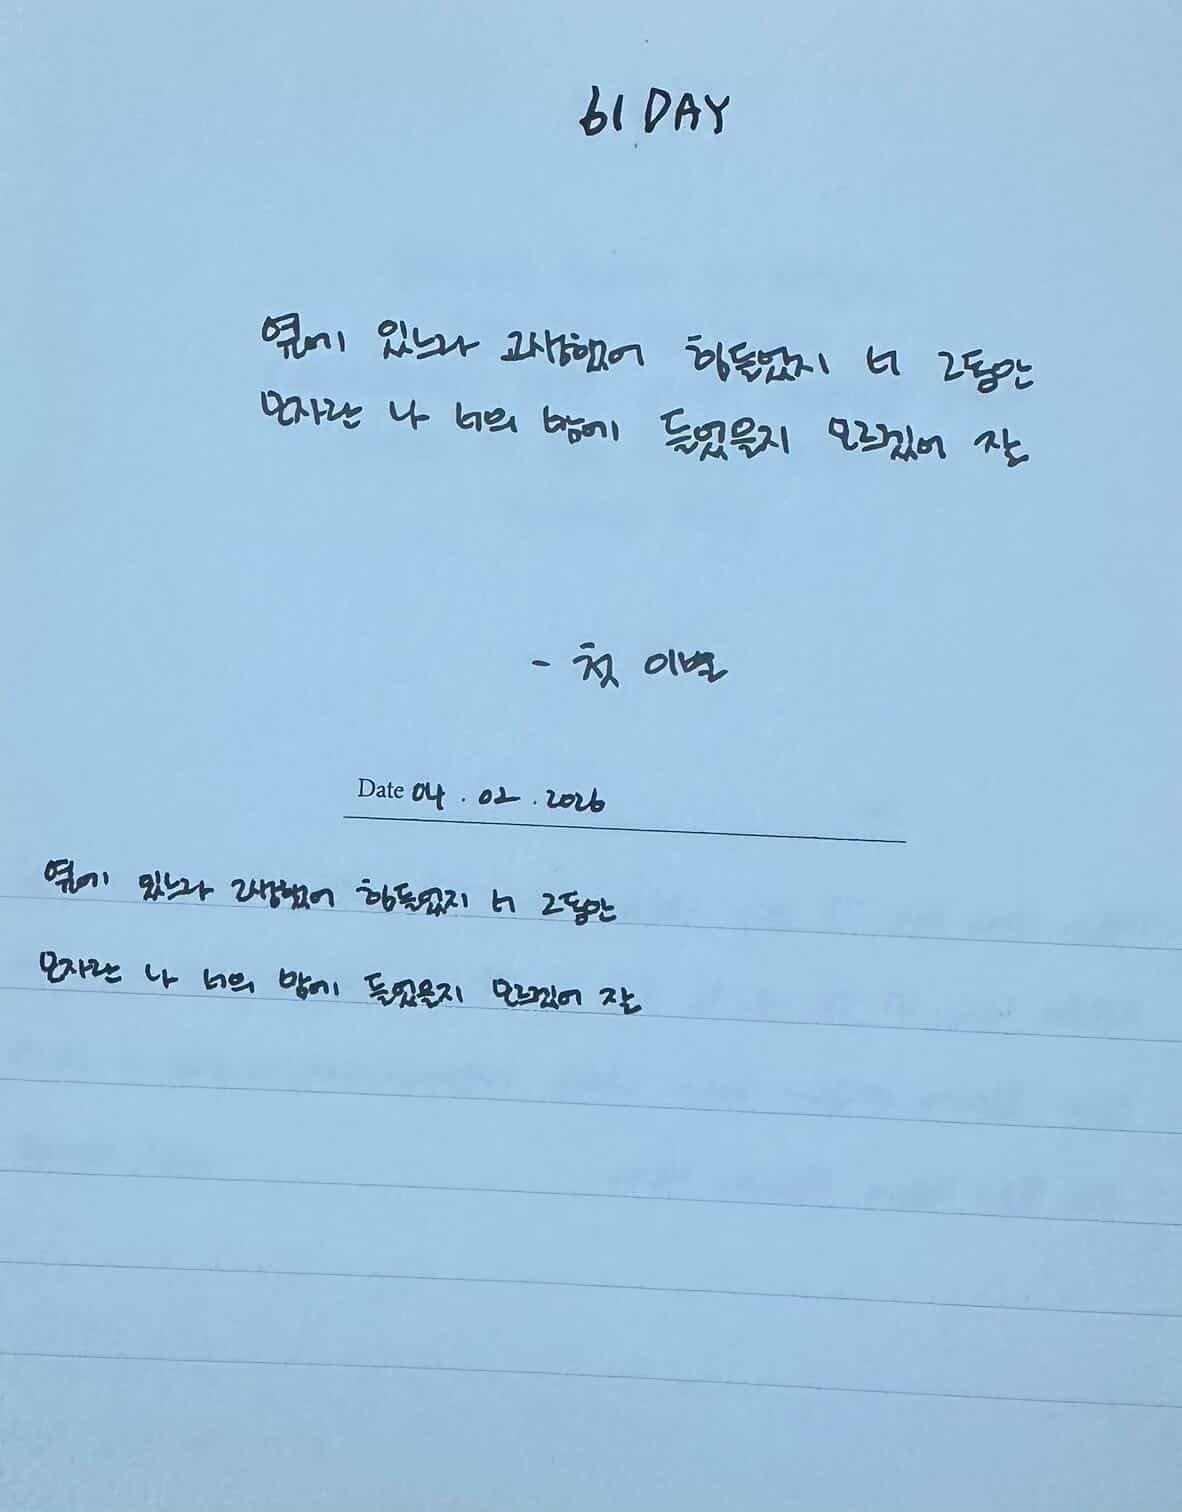 61 DAY
옆에 있느라 고생했어 힘들었지 너 그동안
모자란 나 너의 맘에 들었을지 모르겠어 잘
- 첫 이별
Date 04 . 02 . 2026
옆에 있느라 고생했어 힘들었지 너 그동안
모자란 나 너의 맘에 들었을지 모르겠어 잘